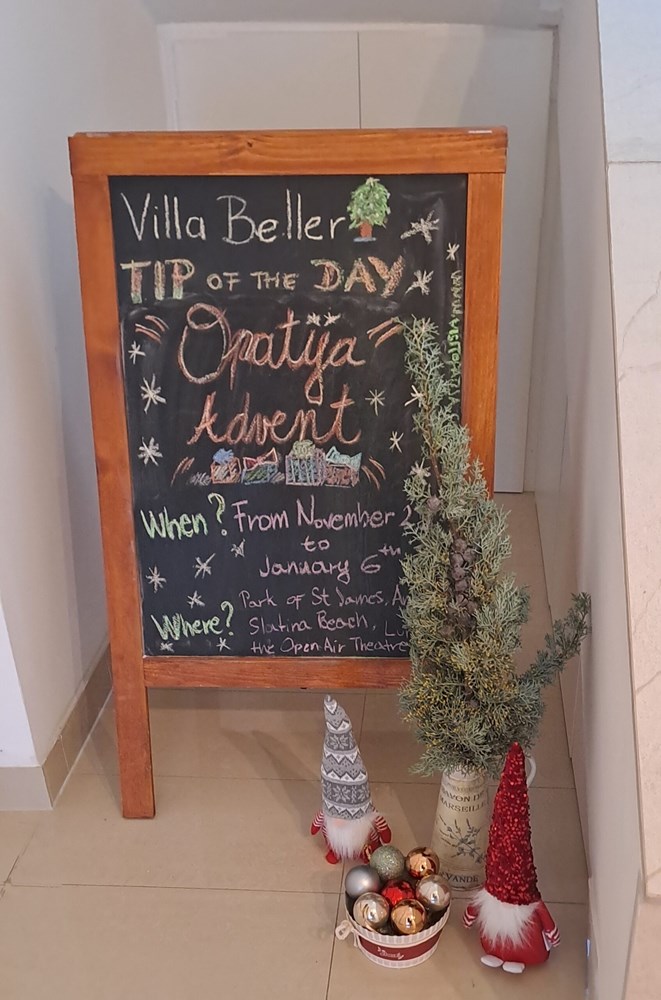 Villa Beller
TIP OF THE DAY
Opatija
Advent
When? From November
to
January 6th
Where? Park of St James,
Slatina Beach,
the Open Air Theatre
SAVON DE
MARSEILLE